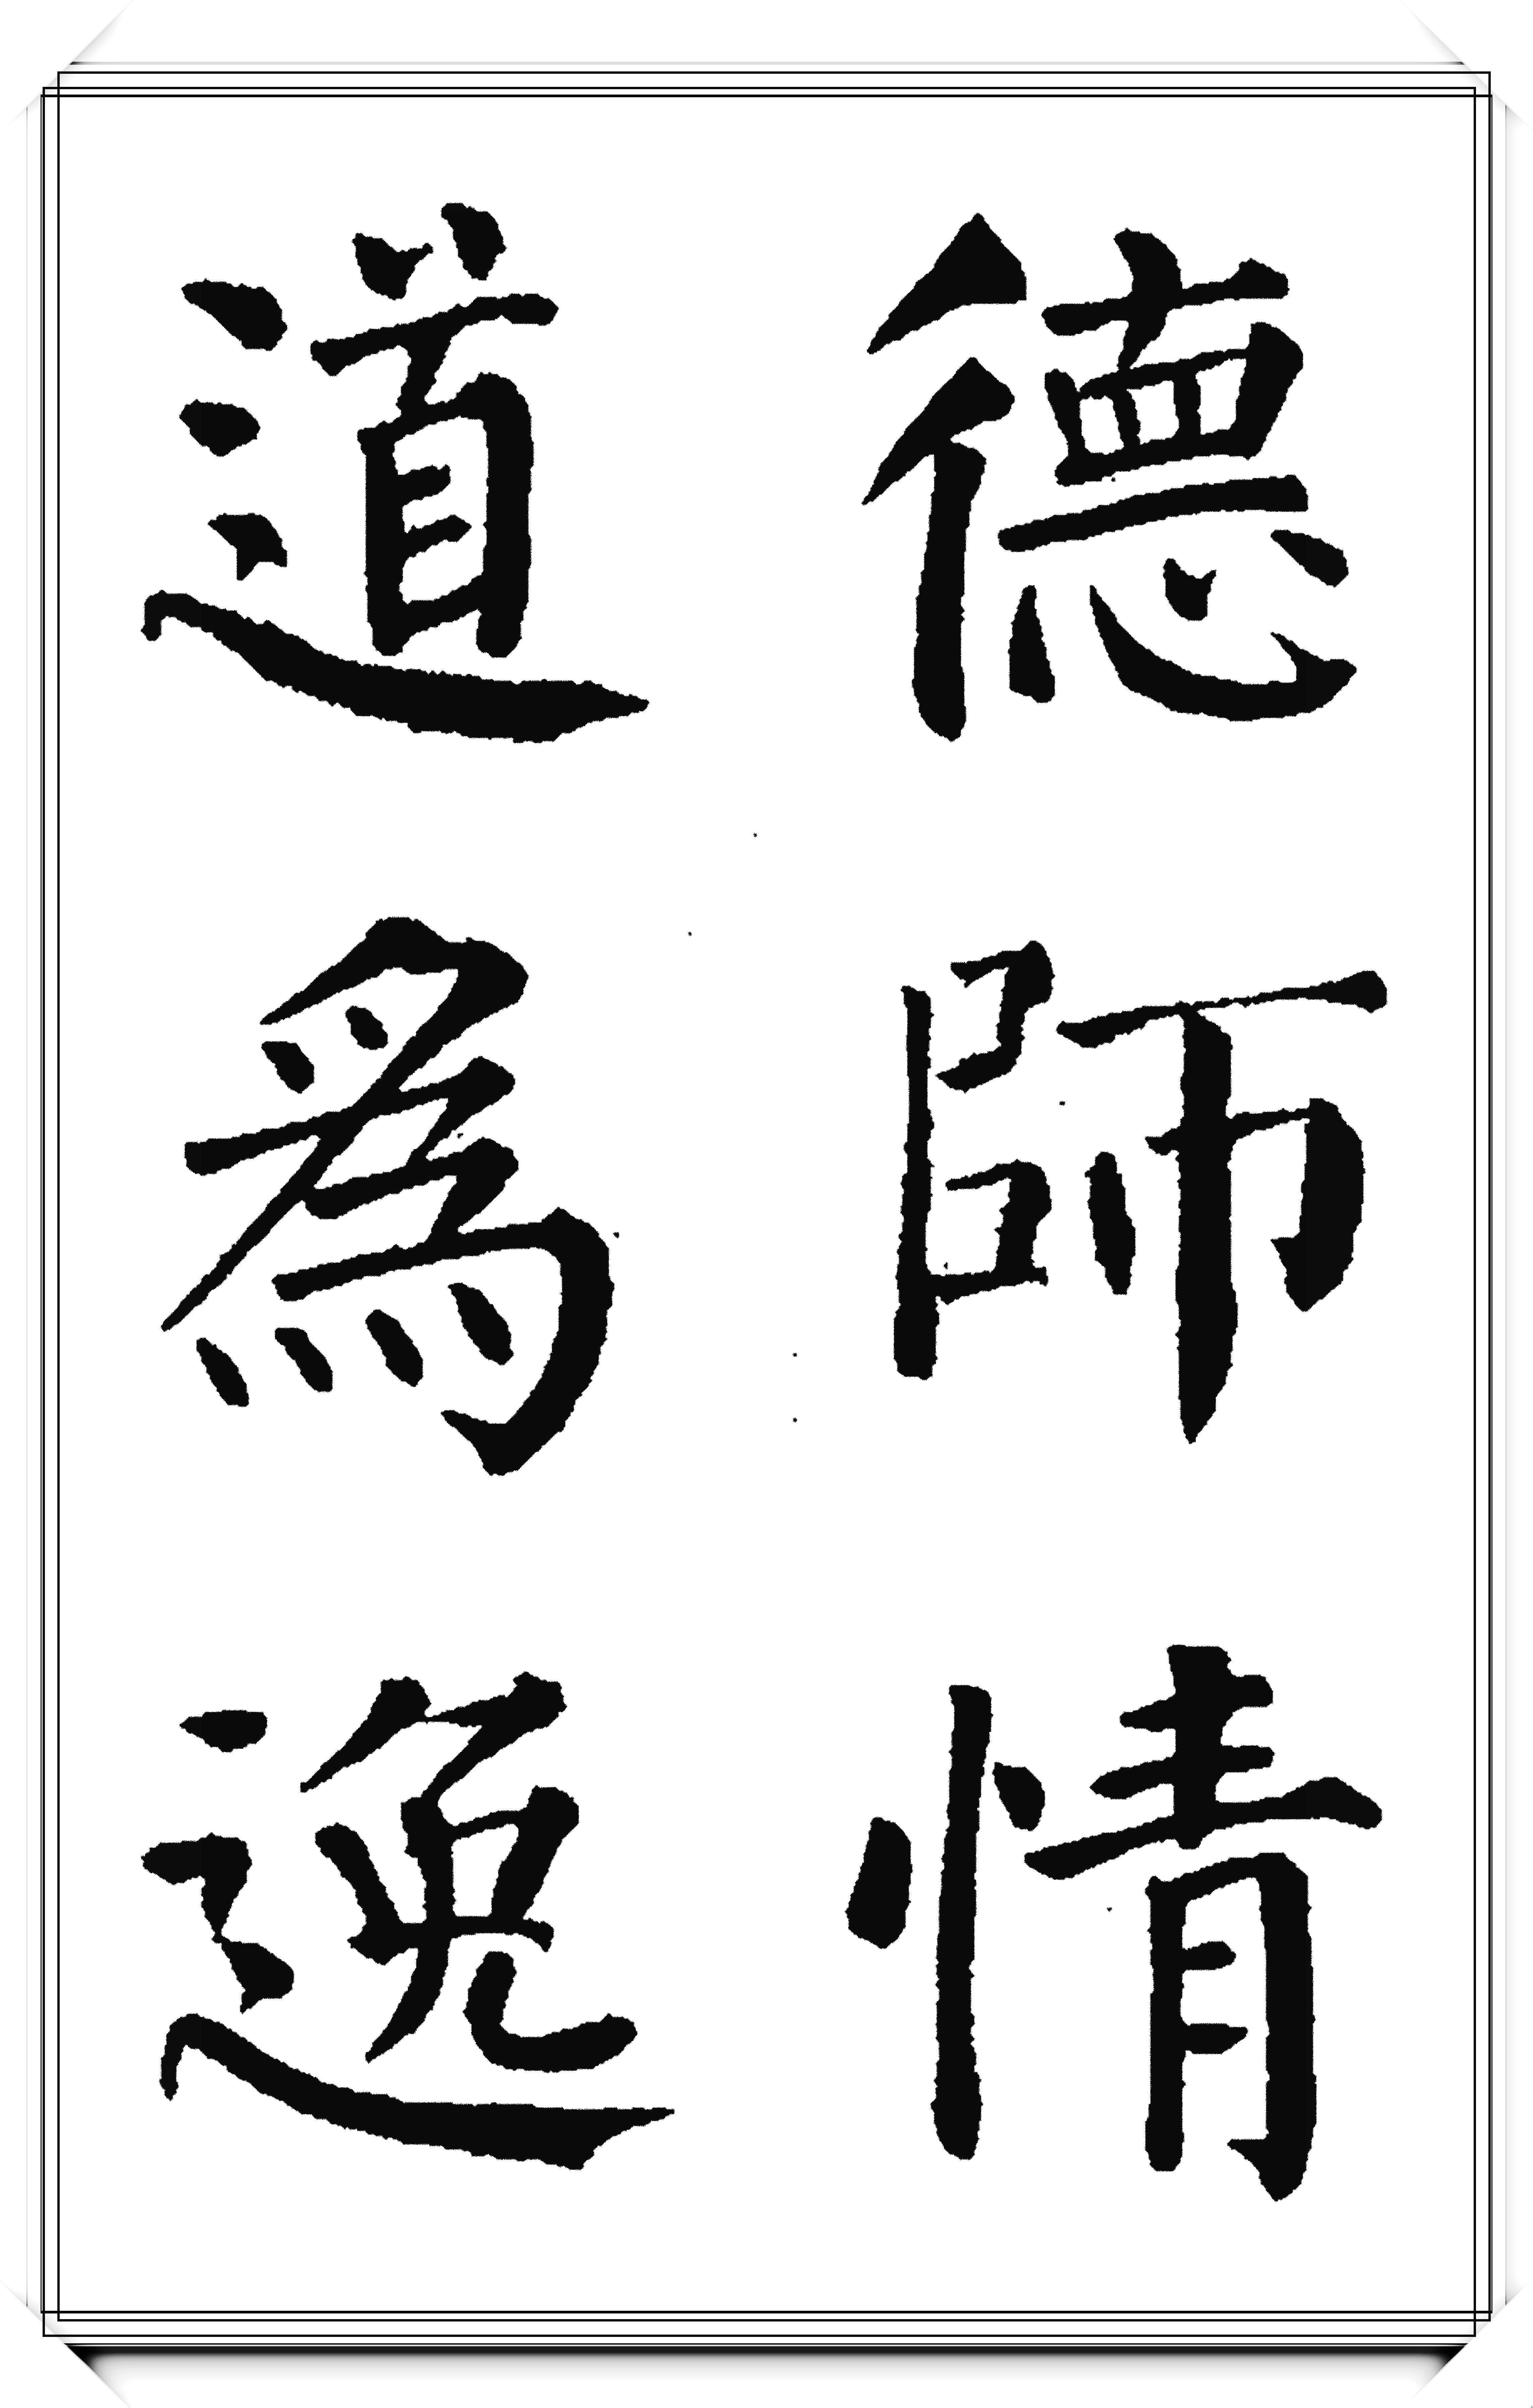 德師情
道爲逸